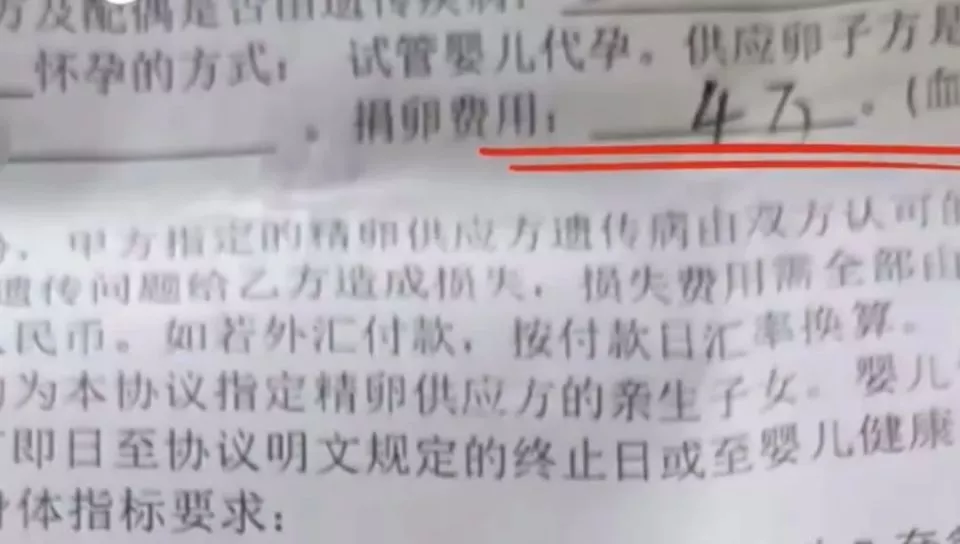 方及配偶是否由遗传疾病:
怀孕的方式: 试管婴儿代孕。供应卵子方是
。捐卵费用: 4万。(血
,甲方指定的精卵供应方遗传病由双方认可的
遗传问题给乙方造成损失,损失费用需全部由
民币。如若外汇付款,按付款日汇率换算。
为本协议指定精卵供应方的亲生子女。婴儿
即日至协议明文规定的终止日或至婴儿健康
体指标要求: